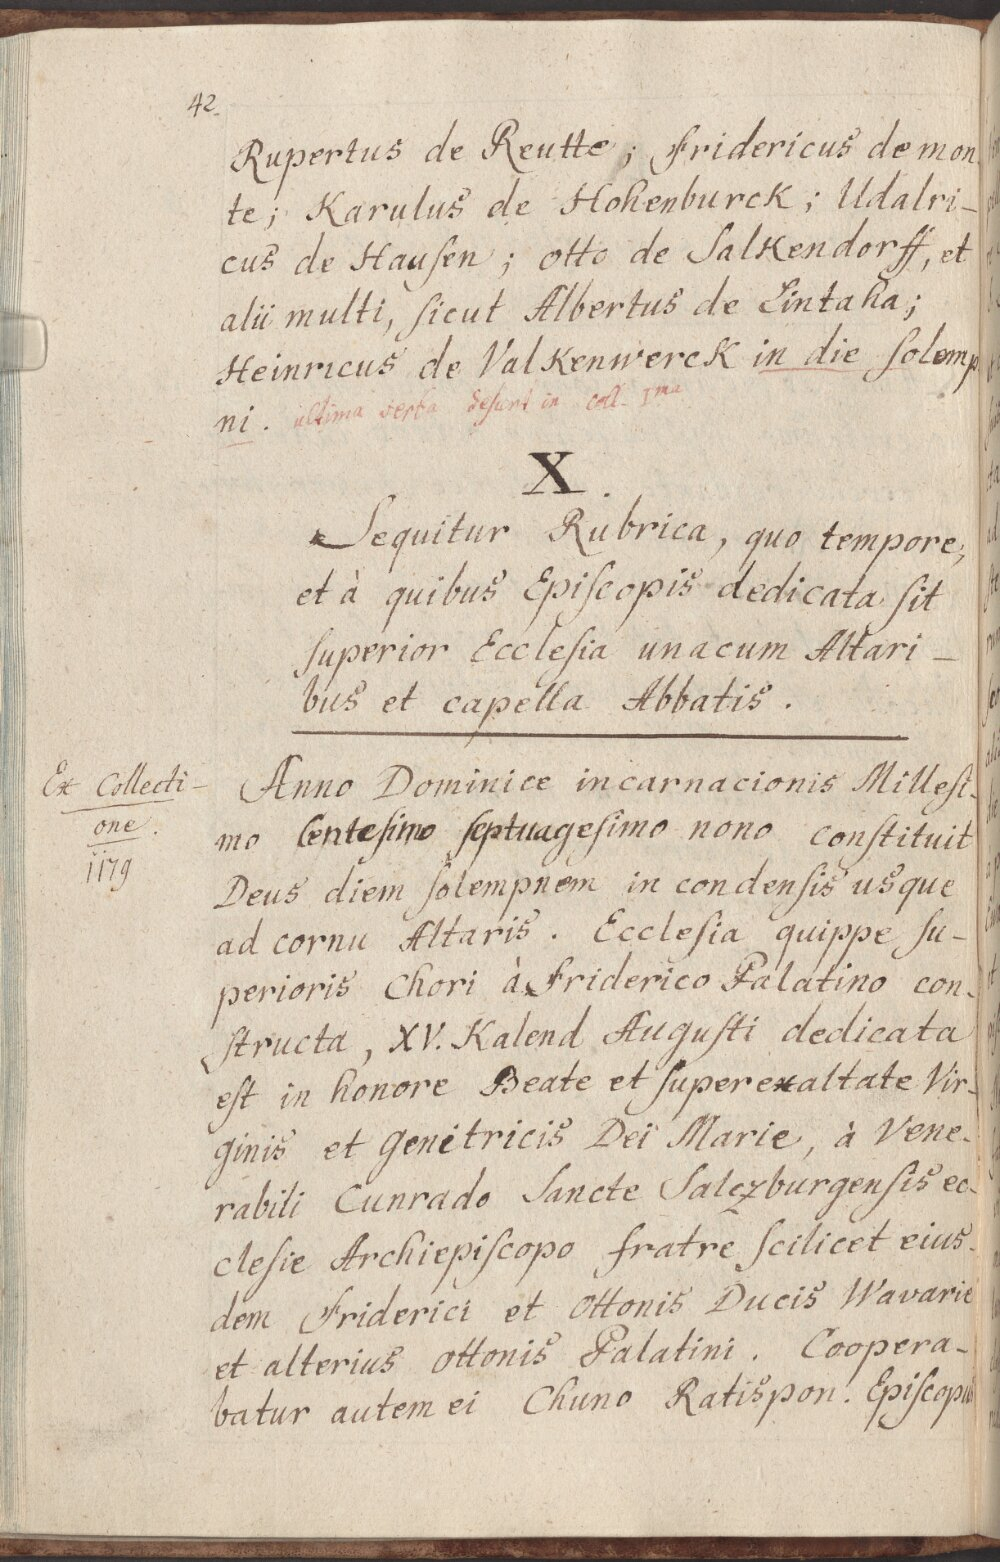 42.
Rupertus de Reutte; Fridericus de mon
te; Karulus de Hohenburcк; Udalri-
cus de Hausen; otto de Salkendorff, et
alii multi, sicut Albertus de Lintaha;
Heinricus de Valkenwerck in die solemp
ni. ultima verba desunt in coll. Ima
X.
Sequitur Rubrica, quo tempore,
et à quibus Episcopis dedicata sit
superior Ecclesia unacum Altari-
bus et capella Abbatis.
Ex Collecti-
one.
1179
Anno Dominice incarnacionis Millesi-
mo Centesimo septuagesimo nono constituit
Deus diem solempnem in condensis usque
ad cornu Altaris. Ecclesia quippe su-
perioris Chori à Friderico Palatino con-
structa, XV. Kalend Augusti dedicata
est in honore Beate et superexaltate Vir-
ginis et genitricis Dei Marie, à Vene-
rabili Cunrado Sancte Salczburgensis ec-
clesie Archiepiscopo fratre scilicet eius-
dem Friderici et Ottonis Ducis Wavarie
et alterius ottonis Palatini. Coopera-
batur autem ei Chuno Ratispon. Episcopus